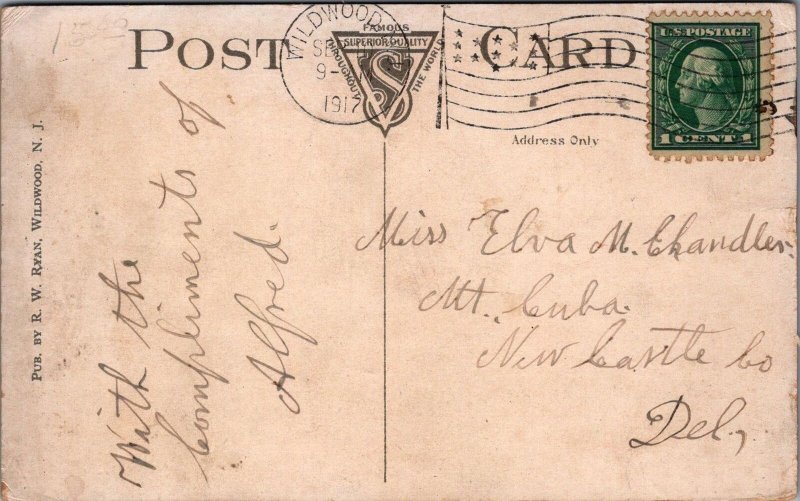 POST CARD
WILDWOOD
9
1917
FAMOUS
SUPERIOR QUALITY
THROUGHOUT THE WORLD
S
U.S. POSTAGE
1 CENT 1
Address Only
PUB. BY R. W. RYAN, WILDWOOD, N. J.
With the
Compliments of
Alfred.
Miss Elva M. Chandler.
Mt. Cuba.
New Castle Co
Del,